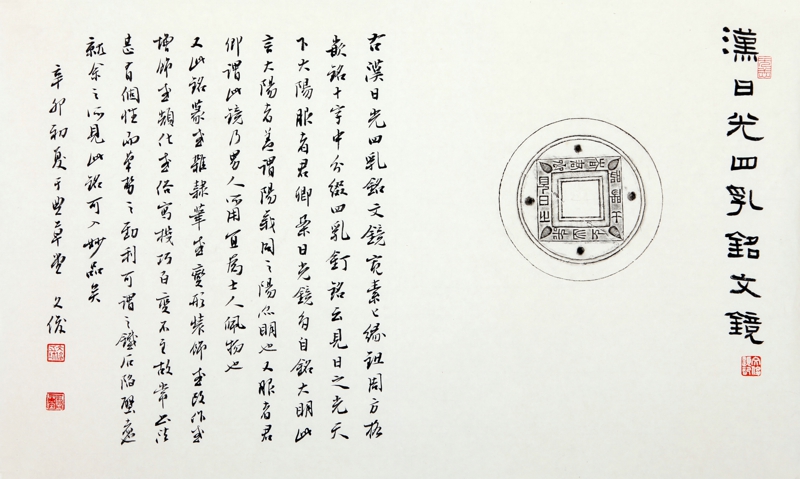 漢日光四乳銘文鏡
見日之
右漢日光四乳銘文鏡寬素緣鈕周方格
嵌銘十字中分綴四乳釘銘云見日之光天
下大陽服者君卿案日光鏡多自銘大明此
言大陽者蓋謂陽義同之陽亦明也又服者君
卿謂此鏡乃男人所用宜為士人佩物也
又此銘篆或雜隸筆或變形裝飾或改作或
增飾或類化或俗寫機巧百變不主故常書法
甚有個性而筆勢之勁利可謂之鐵石陷壁
就余之所見此銘可入妙品矣
辛卯初夏于草堂